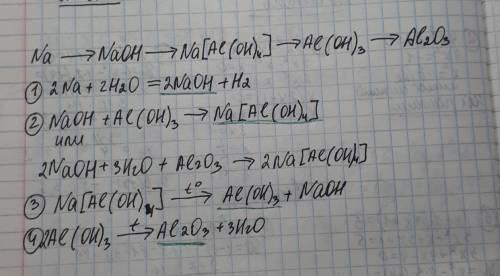 Na → NaOH → Na[Al(OH)₄] → Al(OH)₃ → Al₂O₃
① 2Na + 2H₂O = 2NaOH + H₂
② NaOH + Al(OH)₃ → Na[Al(OH)₄]
или
2NaOH + 3H₂O + Al₂O₃ → 2Na[Al(OH)₄]
③ Na[Al(OH)₄] t° → Al(OH)₃ + NaOH
④ 2Al(OH)₃ t → Al₂O₃ + 3H₂O